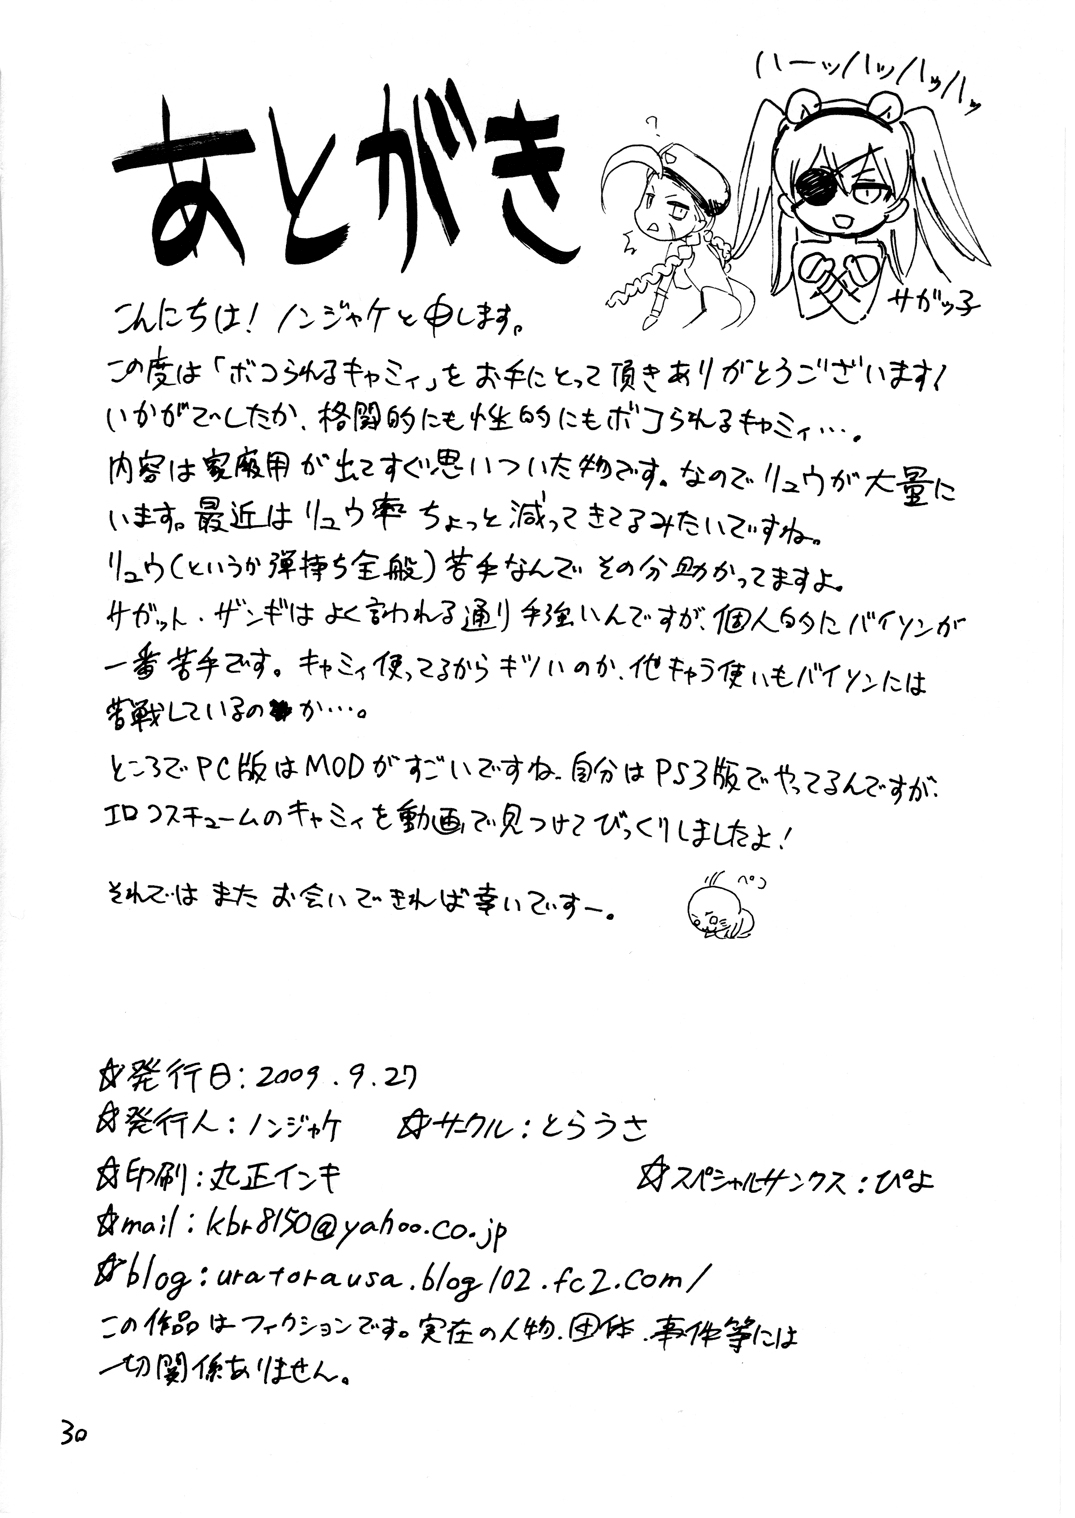 ハーッハッハッハッ
あとがき
?
サガッ子
こんにちは！ノンジャケと申します。
この度は「ボコられるキャミィ」をお手にとって頂きありがとうございます！
いかがでしたか、格闘的にも性的にもボコられるキャミィ…。
内容は家庭用が出てすぐ思いついた物です。なのでリュウが大量に
います。最近はリュウ率ちょっと減ってきてるみたいですね。
リュウ(というか弾持ち全般)苦手なんでその分助かってますよ。
サガット・ザンギはよく言われる通り手強いんですが、個人的にバイソンが
一番苦手です。キャミィ使ってるからキツいのか、他キャラ使いもバイソンには
苦戦しているのか…。
ところでPC版はMODがすごいですね、自分はPS3版でやってるんですが、
エロコスチュームのキャミィを動画で見つけてびっくりしましたよ！
それではまたお会いできれば幸いですー。
ペコ
☆発行日:2009.9.27
☆発行人:ノンジャケ ☆サークル:とらうさ
☆印刷:丸正インキ ☆スペシャルサンクス:ぴよ
☆mail:kbr8150@yahoo.co.jp
☆blog:uratorausa.blog102.fc2.com/
この作品はフィクションです。実在の人物、団体、事件等には
一切関係ありません。
30